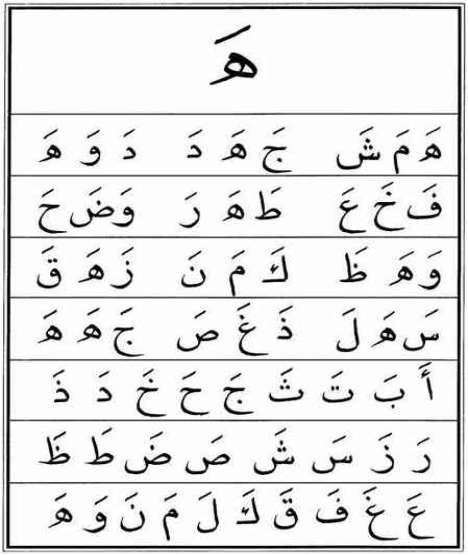 هَ
هَ مَ شَ جَ هَ دَ دَ وَ هَ
فَ خَ عَ طَ هَ رَ وَ ضَ حَ
وَ هَ ظَ كَ مَ نَ زَ هَ قَ
سَ هَ لَ ذَ غَ صَ جَ هَ هَ
أَ بَ تَ ثَ جَ حَ خَ دَ ذَ
رَ زَ سَ شَ صَ ضَ طَ ظَ
عَ غَ فَ قَ كَ لَ مَ نَ وَ هَ